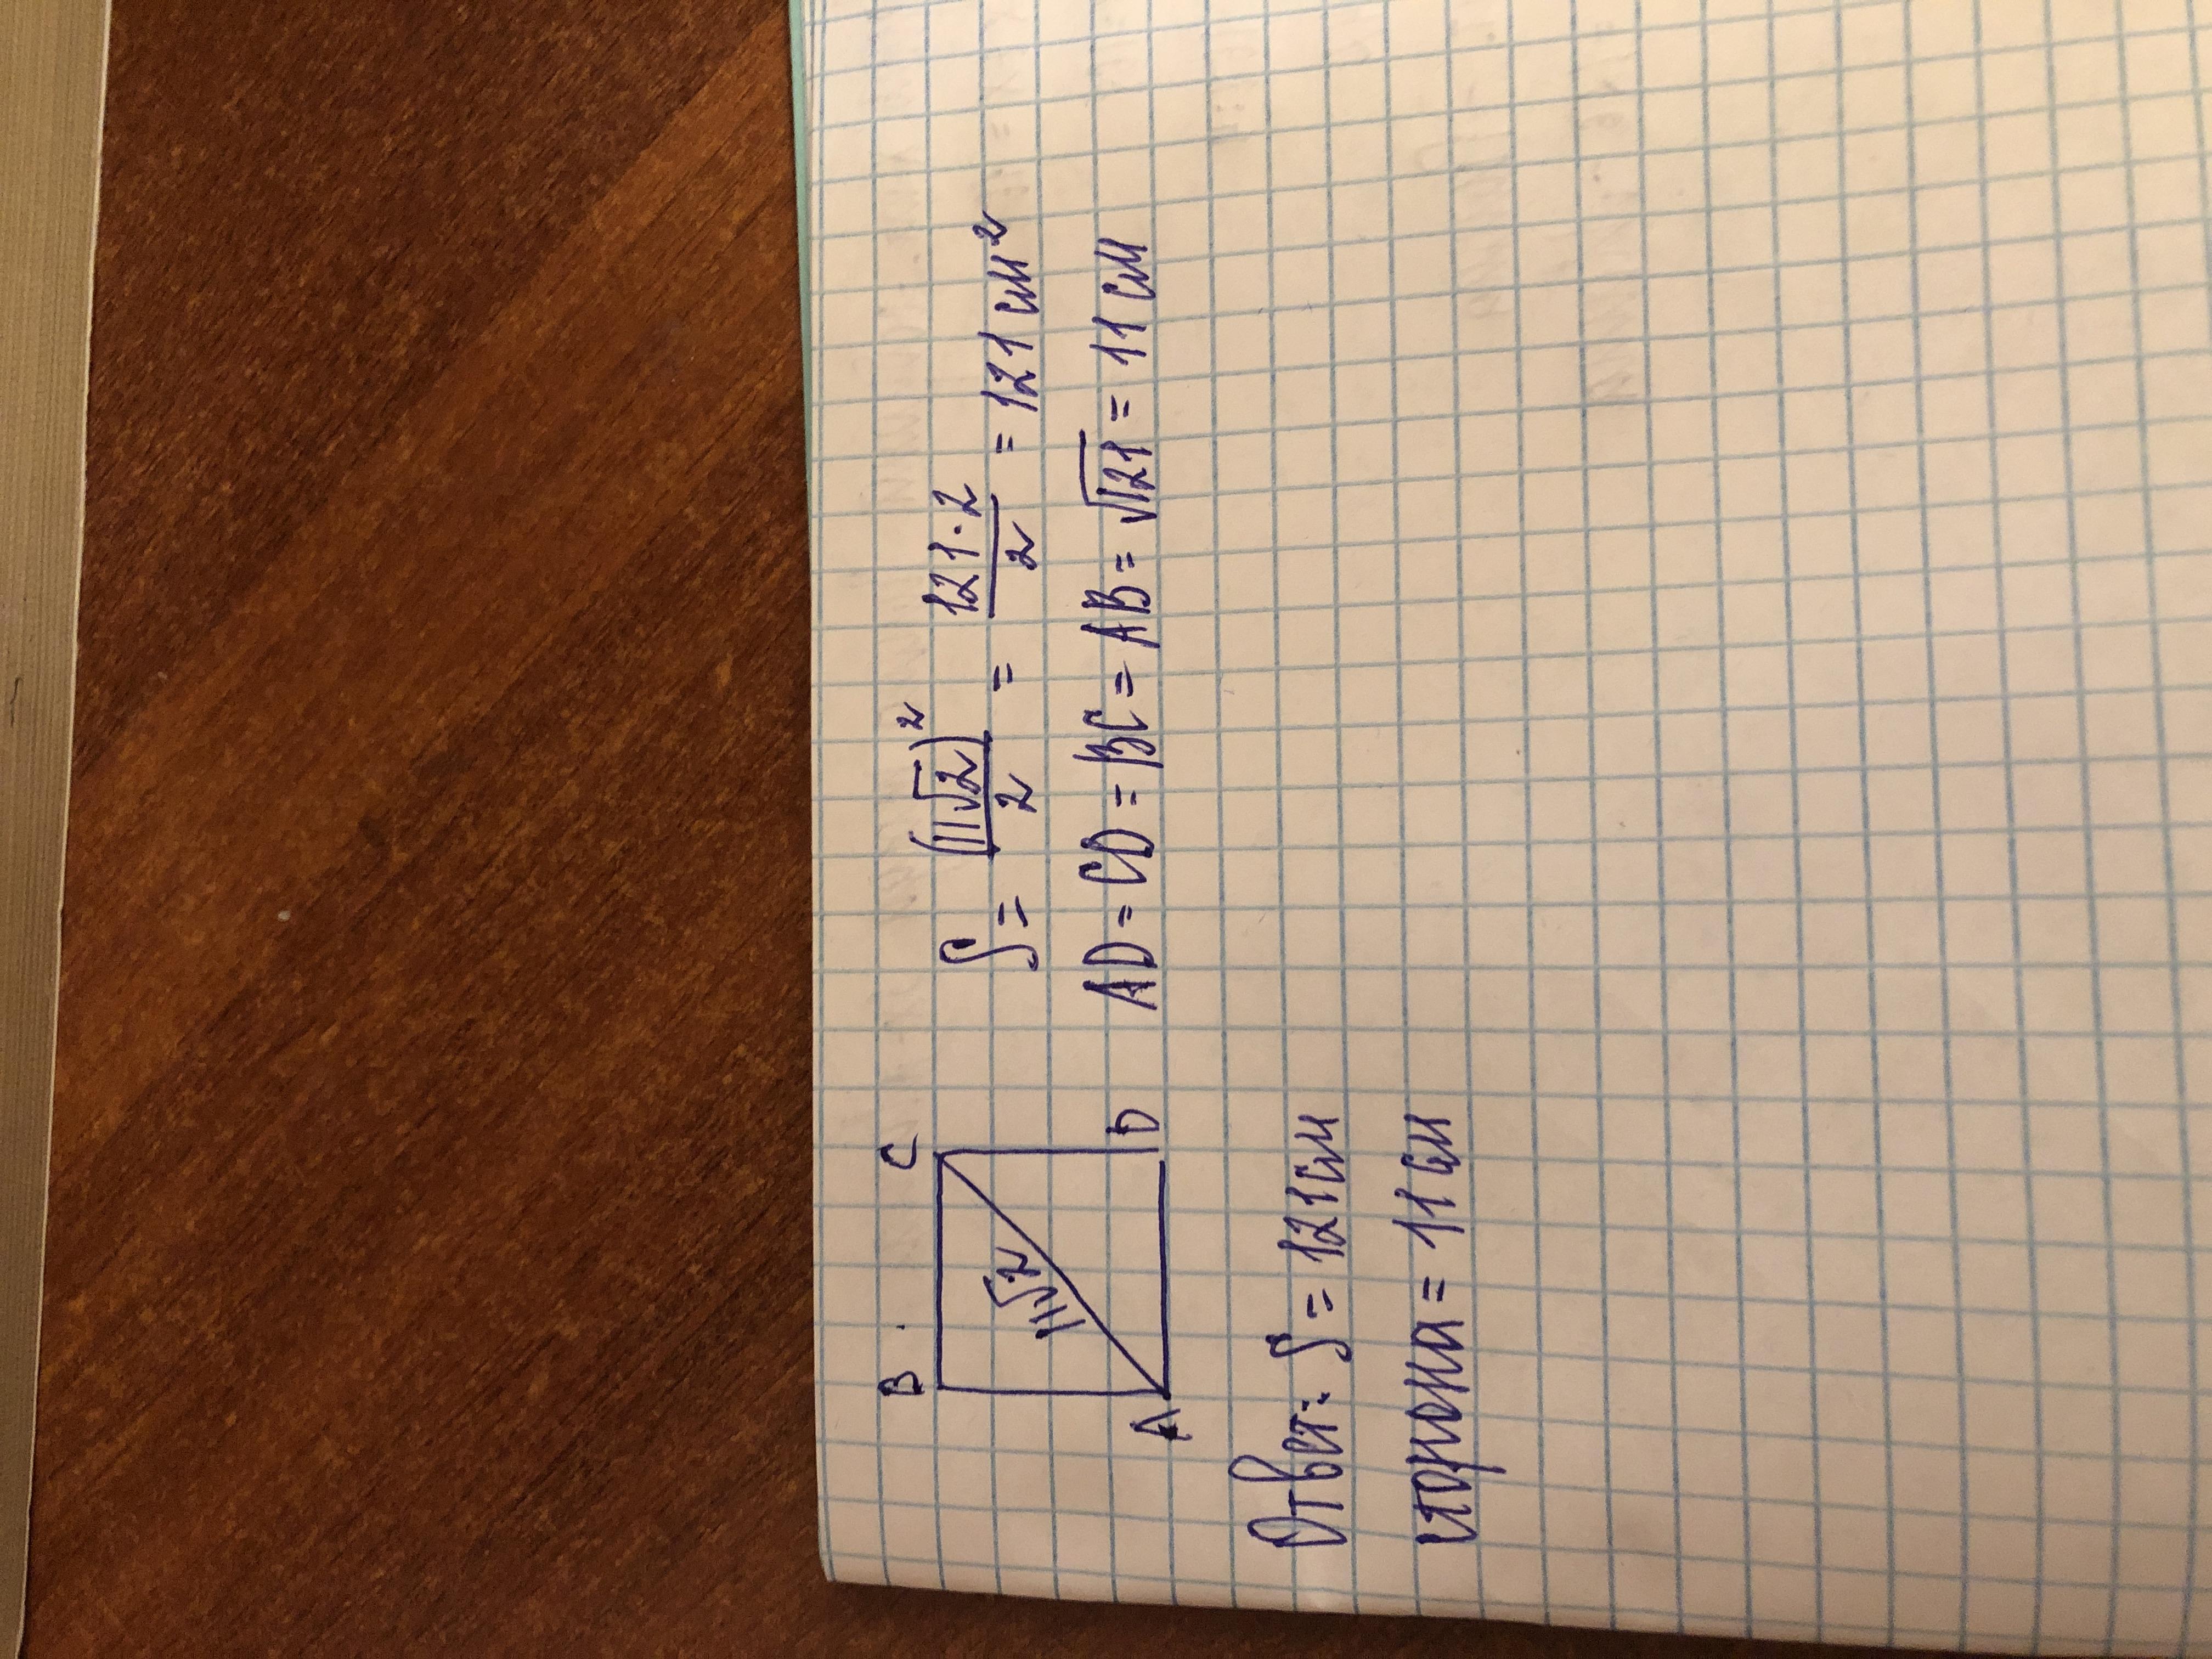 B C
11√2
A D
S = (11√2)²/2 = 121·2/2 = 121 см²
AD = CD = BC = AB = √121 = 11 см
Ответ: S = 121 см
сторона = 11 см